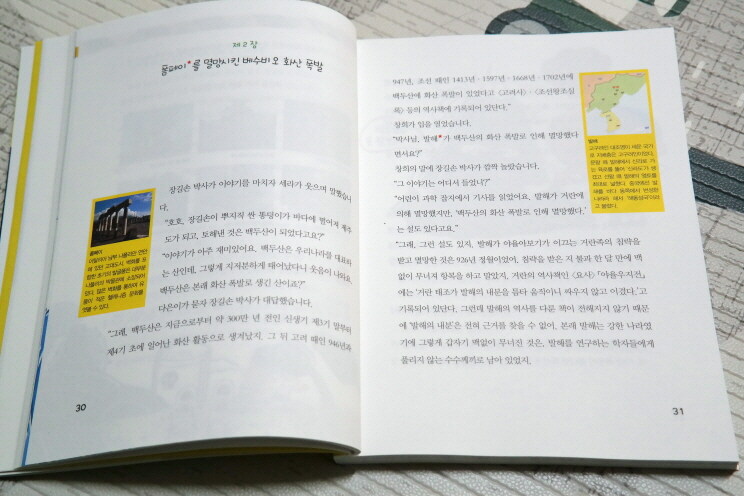 제2장
폼페이*를 멸망시킨 베수비오 화산 폭발
장길손 박사가 이야기를 마치자 세라가 웃으며 말했습니
다.
"호호, 장길손이 뿌지직 싼 똥덩이가 바다에 떨어져 제주
도가 되고, 토해낸 것은 백두산이 되었다고요?"
"이야기가 아주 재미있어요. 백두산은 우리나라를 대표하
는 산인데, 그렇게 지저분하게 태어났다니 웃음이 나와요.
백두산은 본래 화산 폭발로 생긴 산이죠?"
다은이가 묻자 장길손 박사가 대답했습니다.
"그래, 백두산은 지금으로부터 약 300만 년 전인 신생기 제3기 말부터
제4기 초에 일어난 화산 활동으로 생겨났지. 그 뒤 고려 때인 946년과
폼페이
이탈리아 남부 나폴리만 연안
에 있던 고대도시.
30
947년, 조선 때인 1413년·1597년·1668년·1702년에
백두산에 화산 폭발이 있었다고 《고려사》·《조선왕조실
록》 등의 역사책에 기록되어 있단다."
창희가 입을 열었습니다.
"박사님, 발해*가 백두산의 화산 폭발로 인해 멸망했다
면서요?"
창희의 말에 장길손 박사가 깜짝 놀랐습니다.
"그 이야기는 어디서 들었니?"
"어린이 과학 잡지에서 기사를 읽었어요. 발해가 거란에
의해 멸망했지만, '백두산의 화산 폭발로 인해 멸망했다.'
는 설도 있다고요."
"그래, 그런 설도 있지. 발해가 야율아보기가 이끄는 거란족의 침략을
받고 멸망한 것은 926년 정월이었어. 침략을 받은 지 불과 한 달 만에 맥
없이 무너져 항복을 하고 말았지. 거란의 역사책인 《요사》 「야율우지전」
에는 '거란 태조가 발해의 내분을 틈타 움직이니 싸우지 않고 이겼다.'고
기록되어 있단다. 그런데 발해의 역사를 다룬 책이 전해지지 않기 때문
에 '발해의 내분'은 전혀 근거를 찾을 수 없어. 본래 발해는 강한 나라였
기에 그렇게 갑자기 맥없이 무너진 것은, 발해를 연구하는 학자들에게
풀리지 않는 수수께끼로 남아 있었지.
발해
고구려인 대조영이 세운 국가
31